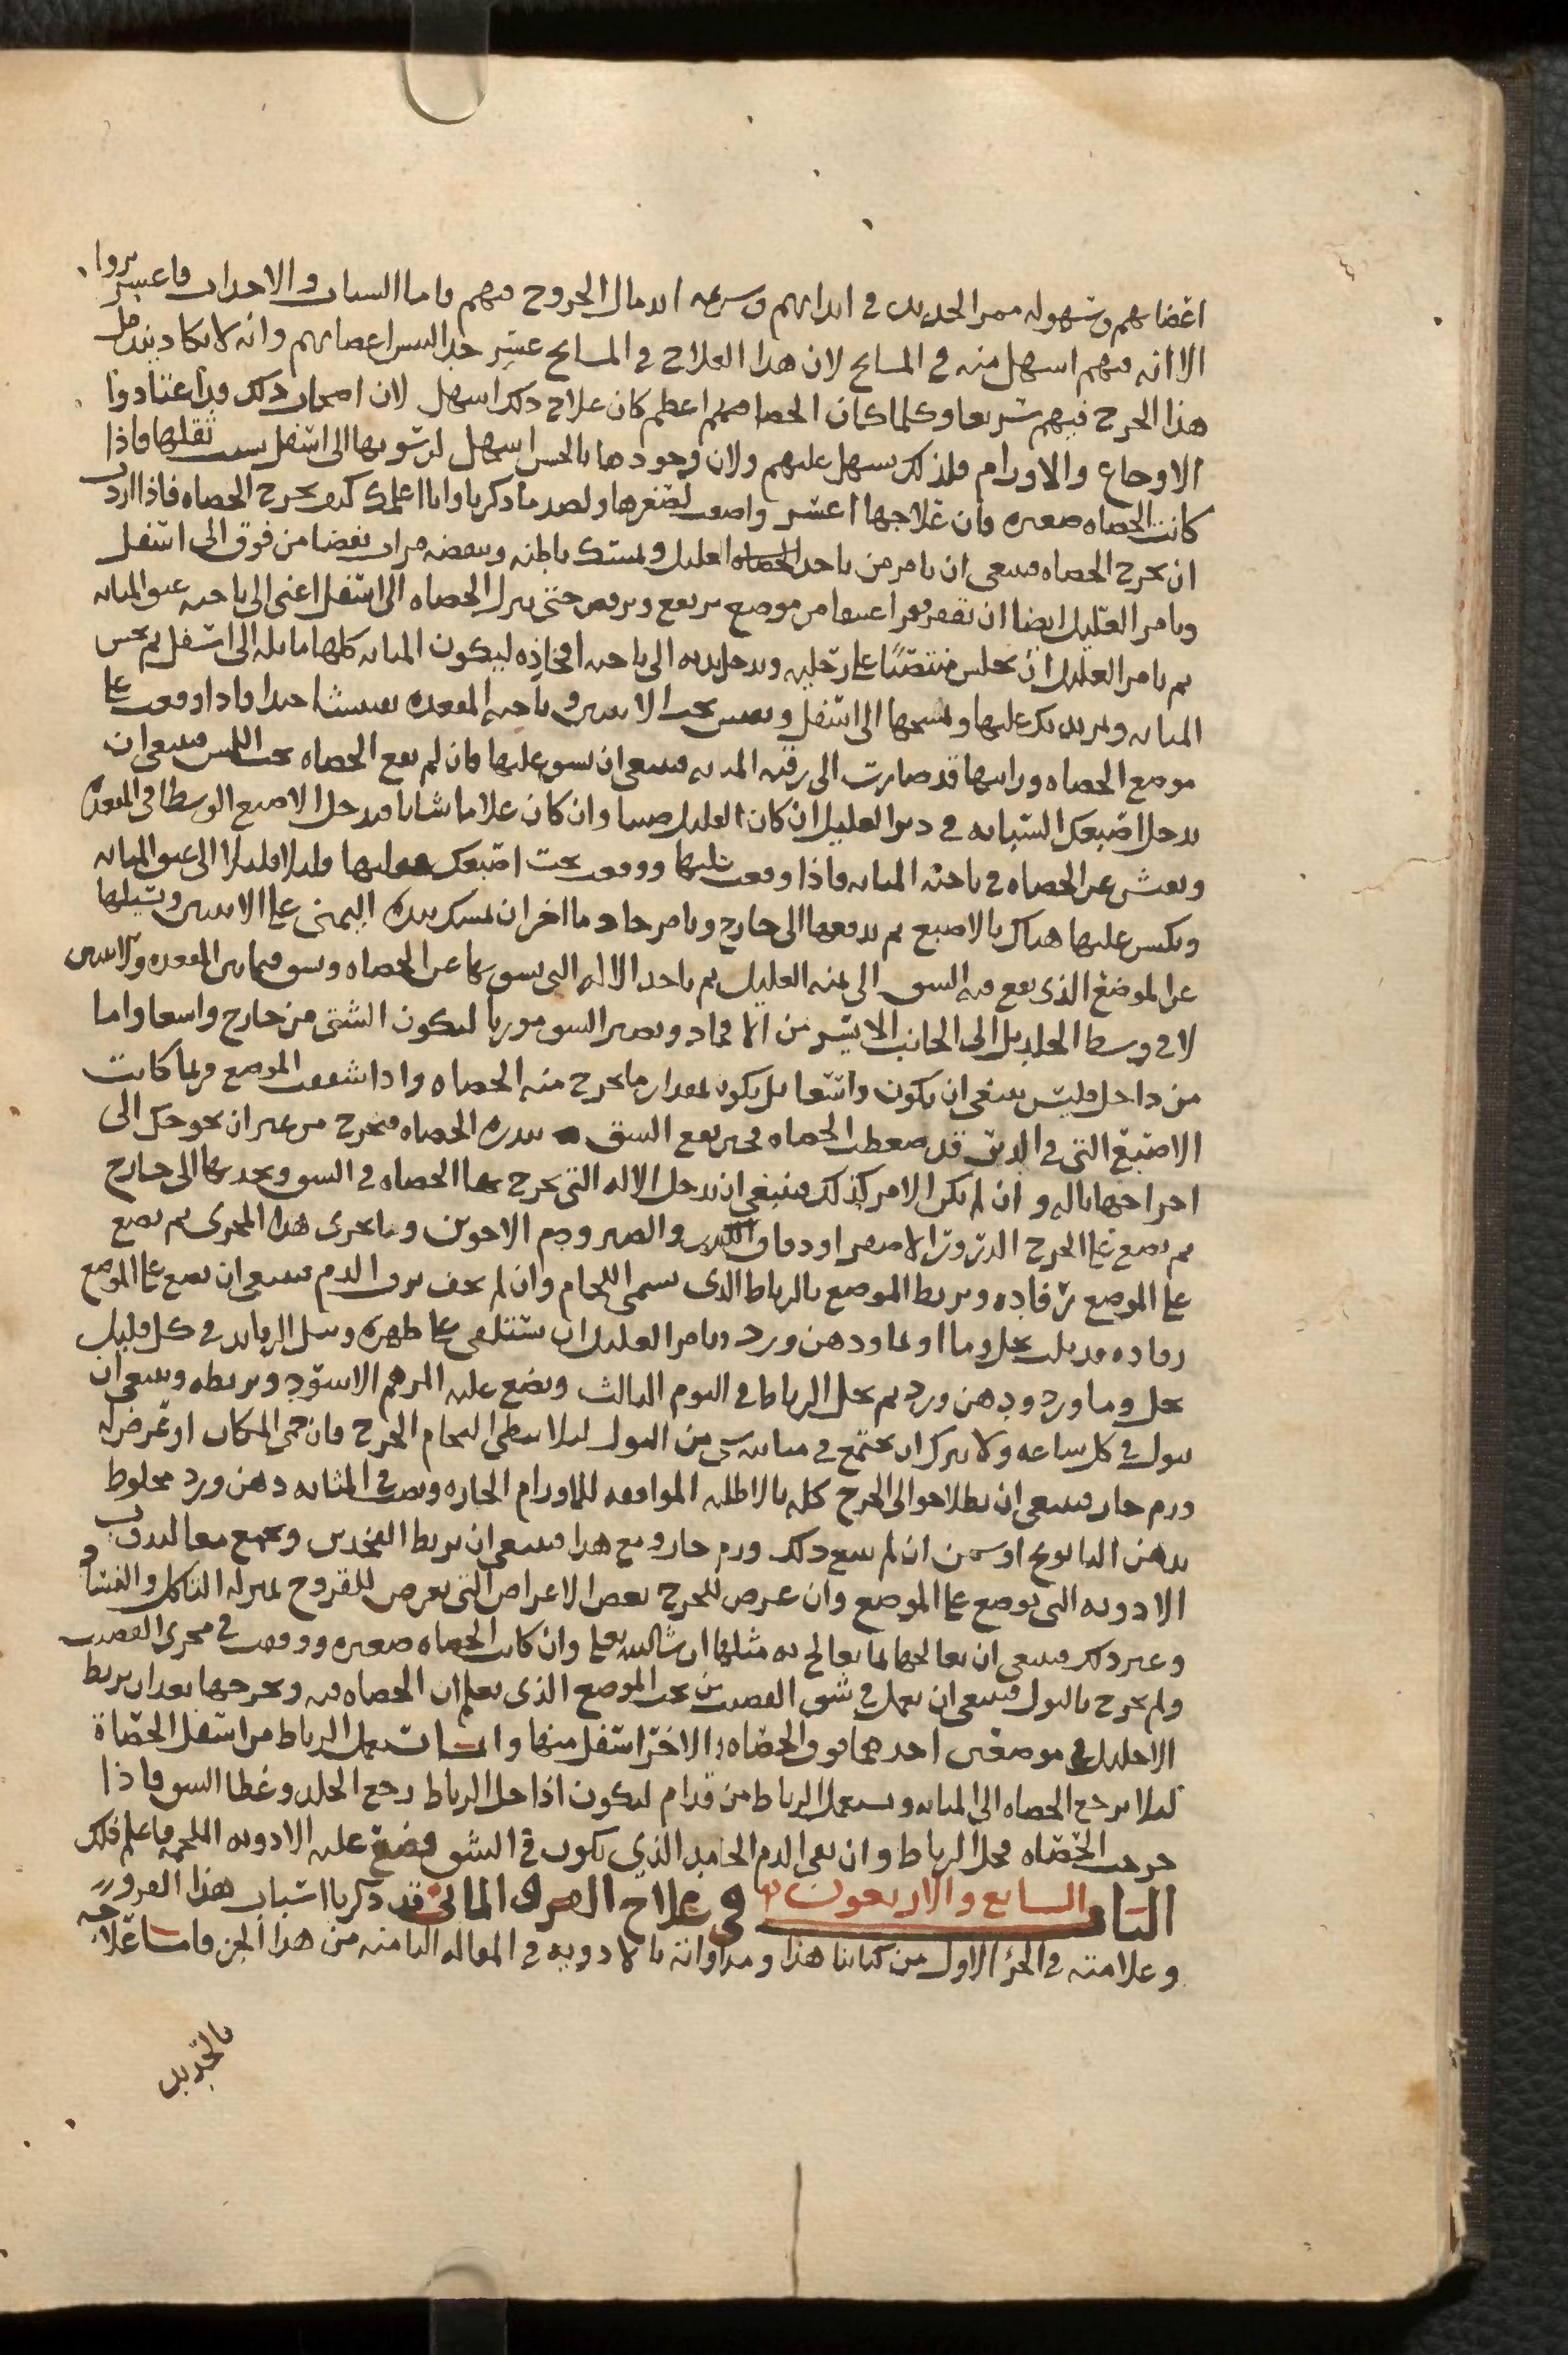 اعضايهم وسهوله ممر الحديد في ابدانهم وسرعه اندمال الجروح فيهم واما الشباب والاحداث فاعسر بروا
الا انه فيهم اسهل منه في المشايخ لان هذا العلاج في المشايخ عسر جدا ليبس اعضايهم وانه لا يكاد يندمل
هذا الجرح فيهم سريعا وكلما كان الحصا منهم اعظم كان علاج ذلك اسهل لان اصحاب ذلك قد اعتادوا
الاوجاع والاورام فلذلك يسهل عليهم ولان وجودها بالحس اسهل لرسوبها الى اسفل بسبب ثقلها فاذا
كانت الحصاه صغيره فان علاجها اعسر واصعب لصغرها ولضد ما ذكرنا وانا اعلمك كيف تخرج الحصاه فاذا اردت
ان تخرج الحصاه فينبغي ان تامر من ياخذ العليل ويمسك باطنه وينفضه مرات نفضا من فوق الى اسفل
وتامر العليل ايضا ان يقفز قفزا عنيفا من موضع مرتفع ويرفس حتى تنزل الحصاه الى اسفل اعني الى ناحيه عنق المثانه
ثم تامر العليل ان يجلس منتصبا على رجليه ويدخل يديه الى ناحيه افخاذه ليكون المثانه كلها مايله الى اسفل ثم تجس
المثانه وتمر يدك عليها وتمسحها الى اسفل وتجس تحت الانثيين وناحيه المقعده تفتيشا جيدا فاذا وقعت على
موضع الحصاه ورايتها قد صارت الى رقبه المثانه فينبغي ان تشق عليها فان لم تقع الحصاه تحت اللمس فينبغي ان
تدخل اصبعك السبابه في دبر العليل ان كان العليل صبيا وان كان غلاما شابا فتدخل الاصبع الوسطا في المقعده
وتفتش عن الحصاه في ناحيه المثانه فاذا وقعت عليها ووقعت تحت اصبعك قليلا قليلا الى عنق المثانه
وتكبس عليها هناك بالاصبع ثم تدفعها الى خارج وتامر خادما اخر ان يمسك بيده اليمنى على الانثيين ويشيلها
عن الموضع الذي يقع فيه الشق الى يمنه العليل ثم ياخذ الاله التي يشق بها عن الحصاه وتشق فيما بين المقعده والانثيين
لا في وسط الجلد بل الى الجانب الايسر من الافخاذ ويصير الشق موربا ليكون الشق من خارج واسعا واما
من داخل فليس ينبغي ان يكون واسعا بل يكون بمقدار ما يخرج منه الحصاه واذا شققت الموضع فربما كانت
الاصبع التي في الدبر قد ضغطت الحصاه فحين يقع الشق تندره الحصاه فتخرج من غير ان تحوجك الى
اخراجها باله وان لم يكن الامر كذلك فينبغي ان تدخل الاله التي تخرج بها الحصاه في الشق وتجذبها الى خارج
ثم تضع على الجرح الذرور الاصفر او دقاق الكندر والصبر ودم الاخوين وما يجري هذا المجرى ثم تضع
على الموضع رفاده وتربط الموضع بالرباط الذي يسمى اللجام وان لم تخف نزف الدم فينبغي ان تضع على الموضع
رفاده قد بلت بخل وما او بما ودهن ورد وتامر العليل ان يستلقي على ظهره وتبل الرفايد في كل قليل
بخل وما ورد ودهن ورد ثم تحل الرباط في اليوم الثالث وتضع عليه المرهم الاسود وتربطه وينبغي ان
يبول في كل ساعه ولا يترك ان يجتمع في مثانته شي من البول ليلا يبطي التحام الجرح فان حمي المكان او عرض له
ورم حار فينبغي ان يطلا حوالى الجرح كله بالاطليه الموافقه للاورام الحاره ويصب في المثانه دهن ورد مخلوط
بدهن البابونج او سمن ان لم يمنع ذلك ورم حار ومع هذا فينبغي ان تربط الفخذين وتجمع معا لتلزق
الادويه التي توضع على الموضع وان عرض للجرح بعض الاعراض التي تعرض للقروح بمنزله التاكل والفساد
وغير ذلك فينبغي ان تعالجها بما يعالج به مثلها ان شا الله تعالى وان كانت الحصاه صغيره ووقفت في مجرى القضيب
ولم تخرج بالبول فينبغي ان تعمل في شق القضيب من تحت الموضع الذي تعلم ان الحصاه فيه وتخرجها بعد ان تربط
الاحليل في موضعين احدهما فوق الحصاه والاخر اسفل منها وانما يستعمل الرباط من اسفل الحصاة
ليلا ترجع الحصاه الى المثانه ويستعمل الرباط من قدام ليكون اذا حل الرباط رجع الجلد وغطا الشق فاذا
خرجت الحصاه فحل الرباط وان تنقي الدم الجامد الذي يكون في الشق فضع عليه الادويه الملحمه فاعلم ذلك
الباب السابع والاربعون في علاج القرو المائي قد ذكرنا اسباب هذا القرو
وعلامته في الجز الاول من كتابنا هذا ومداواته بالادويه في المقاله الثامنه من هذا الجز فاما علاجه
بالحديد